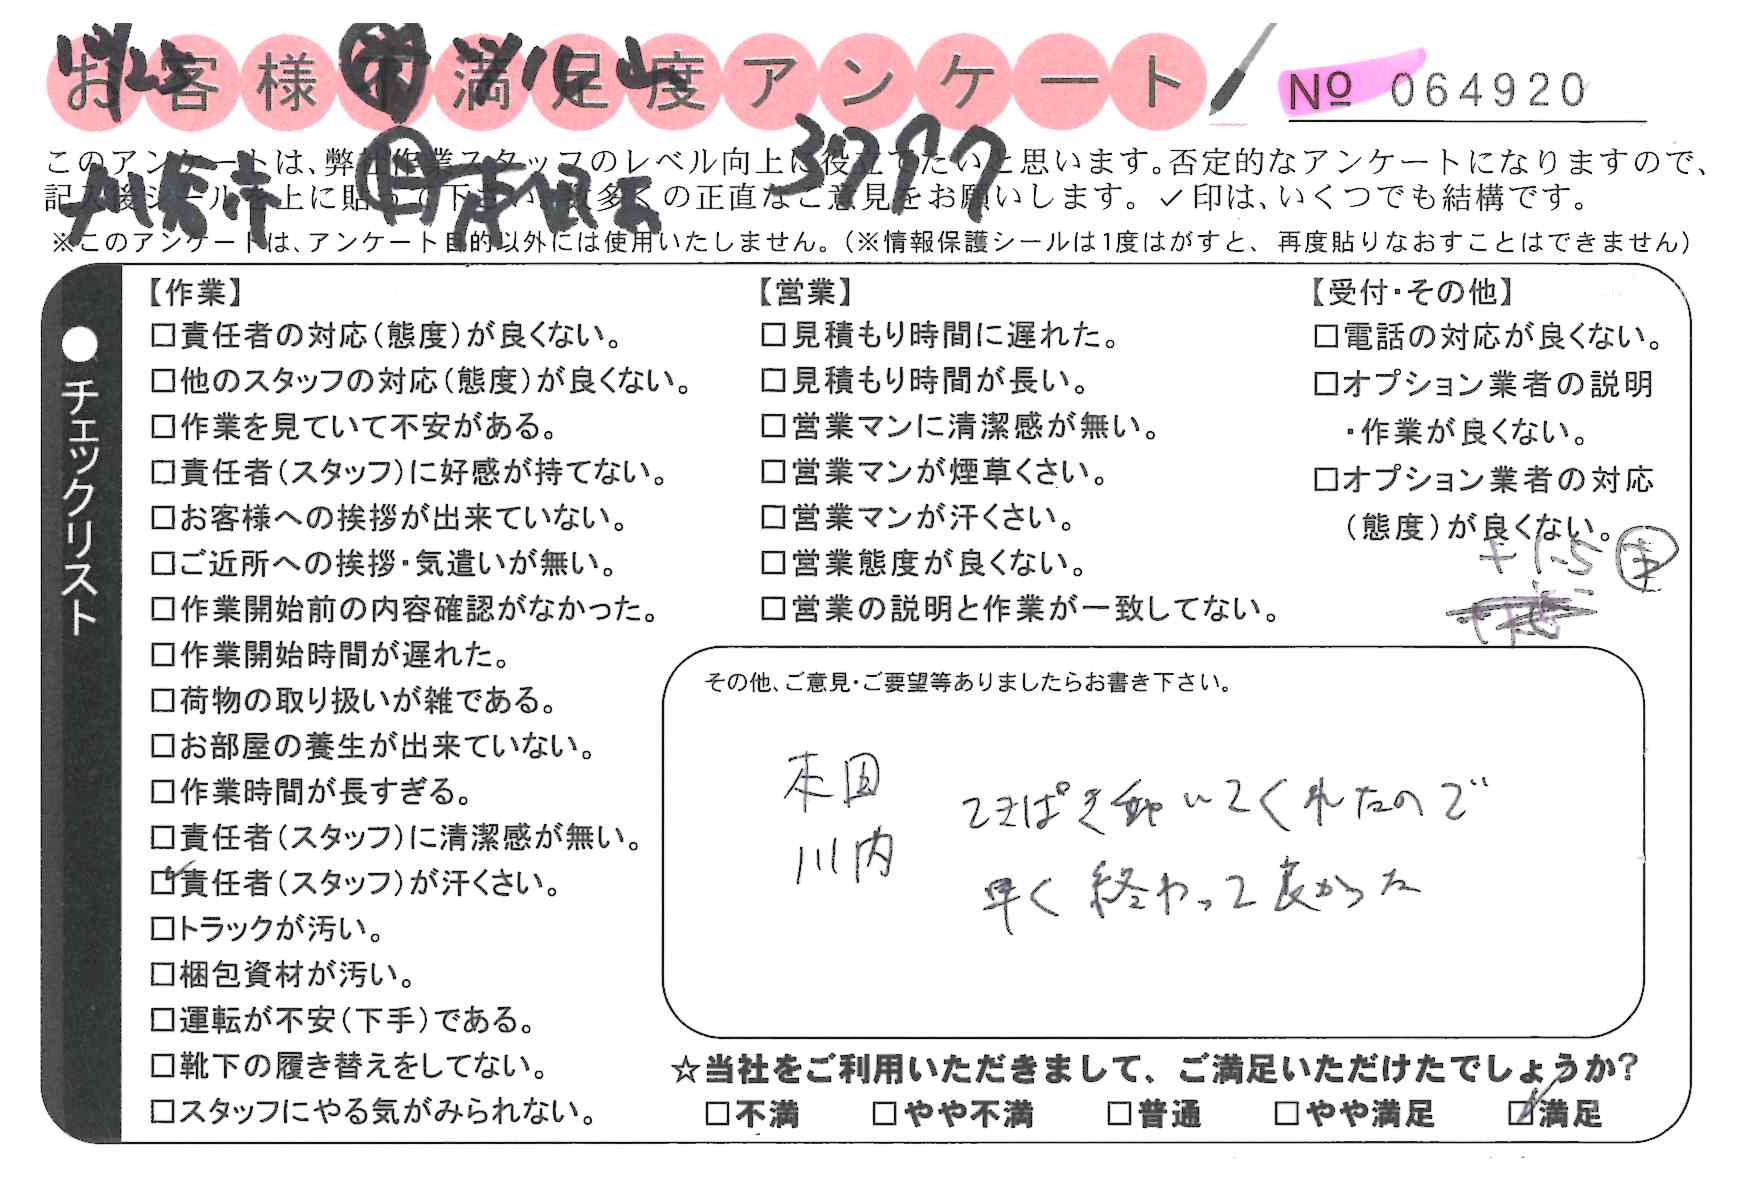 お客様不満足度アンケート
№ 064920
このアンケートは、弊社作業スタッフのレベル向上に役立てたいと思います。否定的なアンケートになりますので、
記入後シールを上に貼って下さい。数多くの正直なご意見をお願いします。✓印は、いくつでも結構です。
3797
※このアンケートは、アンケート目的以外には使用いたしません。（※情報保護シールは1度はがすと、再度貼りなおすことはできません）
●チェックリスト
【作業】
□責任者の対応（態度）が良くない。
□他のスタッフの対応（態度）が良くない。
□作業を見ていて不安がある。
□責任者（スタッフ）に好感が持てない。
□お客様への挨拶が出来ていない。
□ご近所への挨拶・気遣いが無い。
□作業開始前の内容確認がなかった。
□作業開始時間が遅れた。
□荷物の取り扱いが雑である。
□お部屋の養生が出来ていない。
□作業時間が長すぎる。
□責任者（スタッフ）に清潔感が無い。
☑責任者（スタッフ）が汗くさい。
□トラックが汚い。
□梱包資材が汚い。
□運転が不安（下手）である。
□靴下の履き替えをしてない。
□スタッフにやる気がみられない。
【営業】
□見積もり時間に遅れた。
□見積もり時間が長い。
□営業マンに清潔感が無い。
□営業マンが煙草くさい。
□営業マンが汗くさい。
□営業態度が良くない。
□営業の説明と作業が一致してない。
【受付・その他】
□電話の対応が良くない。
□オプション業者の説明
・作業が良くない。
□オプション業者の対応
（態度）が良くない。
+1.5
その他、ご意見・ご要望等ありましたらお書き下さい。
本田
川内
てきぱき動いてくれたので
早く終わって良かった
☆当社をご利用いただきまして、ご満足いただけたでしょうか？
□不満 □やや不満 □普通 □やや満足 ☑満足